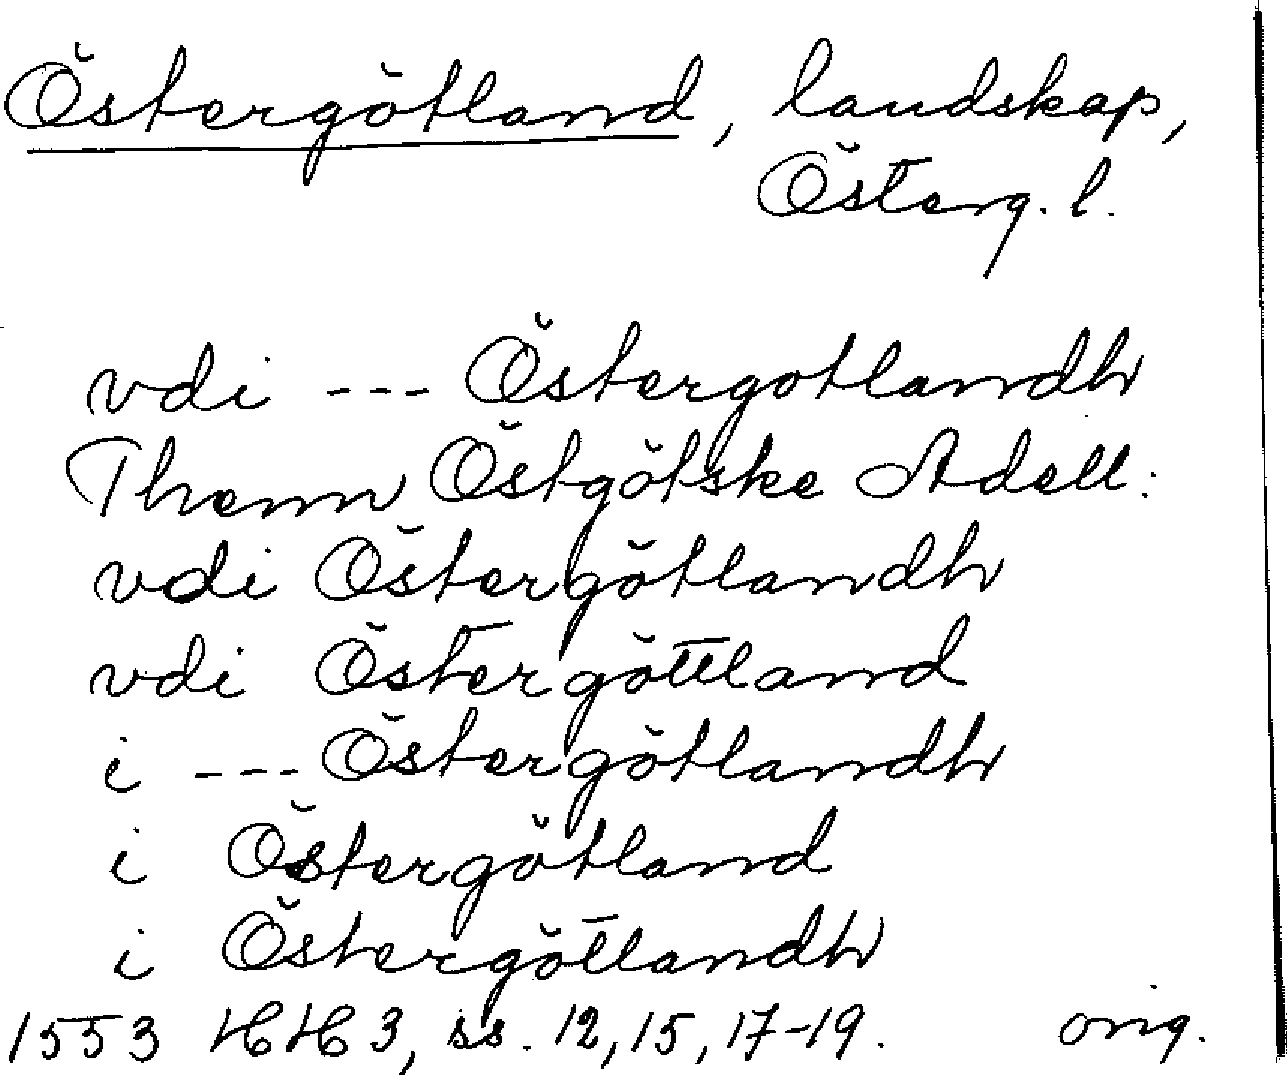 Östergötland, landskap,
Österg. l.
vdi --- Östergotlandh
Thenn Östgötske Adell:
vdi Östergötlandh
vdi Östergöttland
i --- Östergötlandh
i Östergötland
i Östergötlandh
1553 HH 3, ss. 12, 15, 17-19. orig.